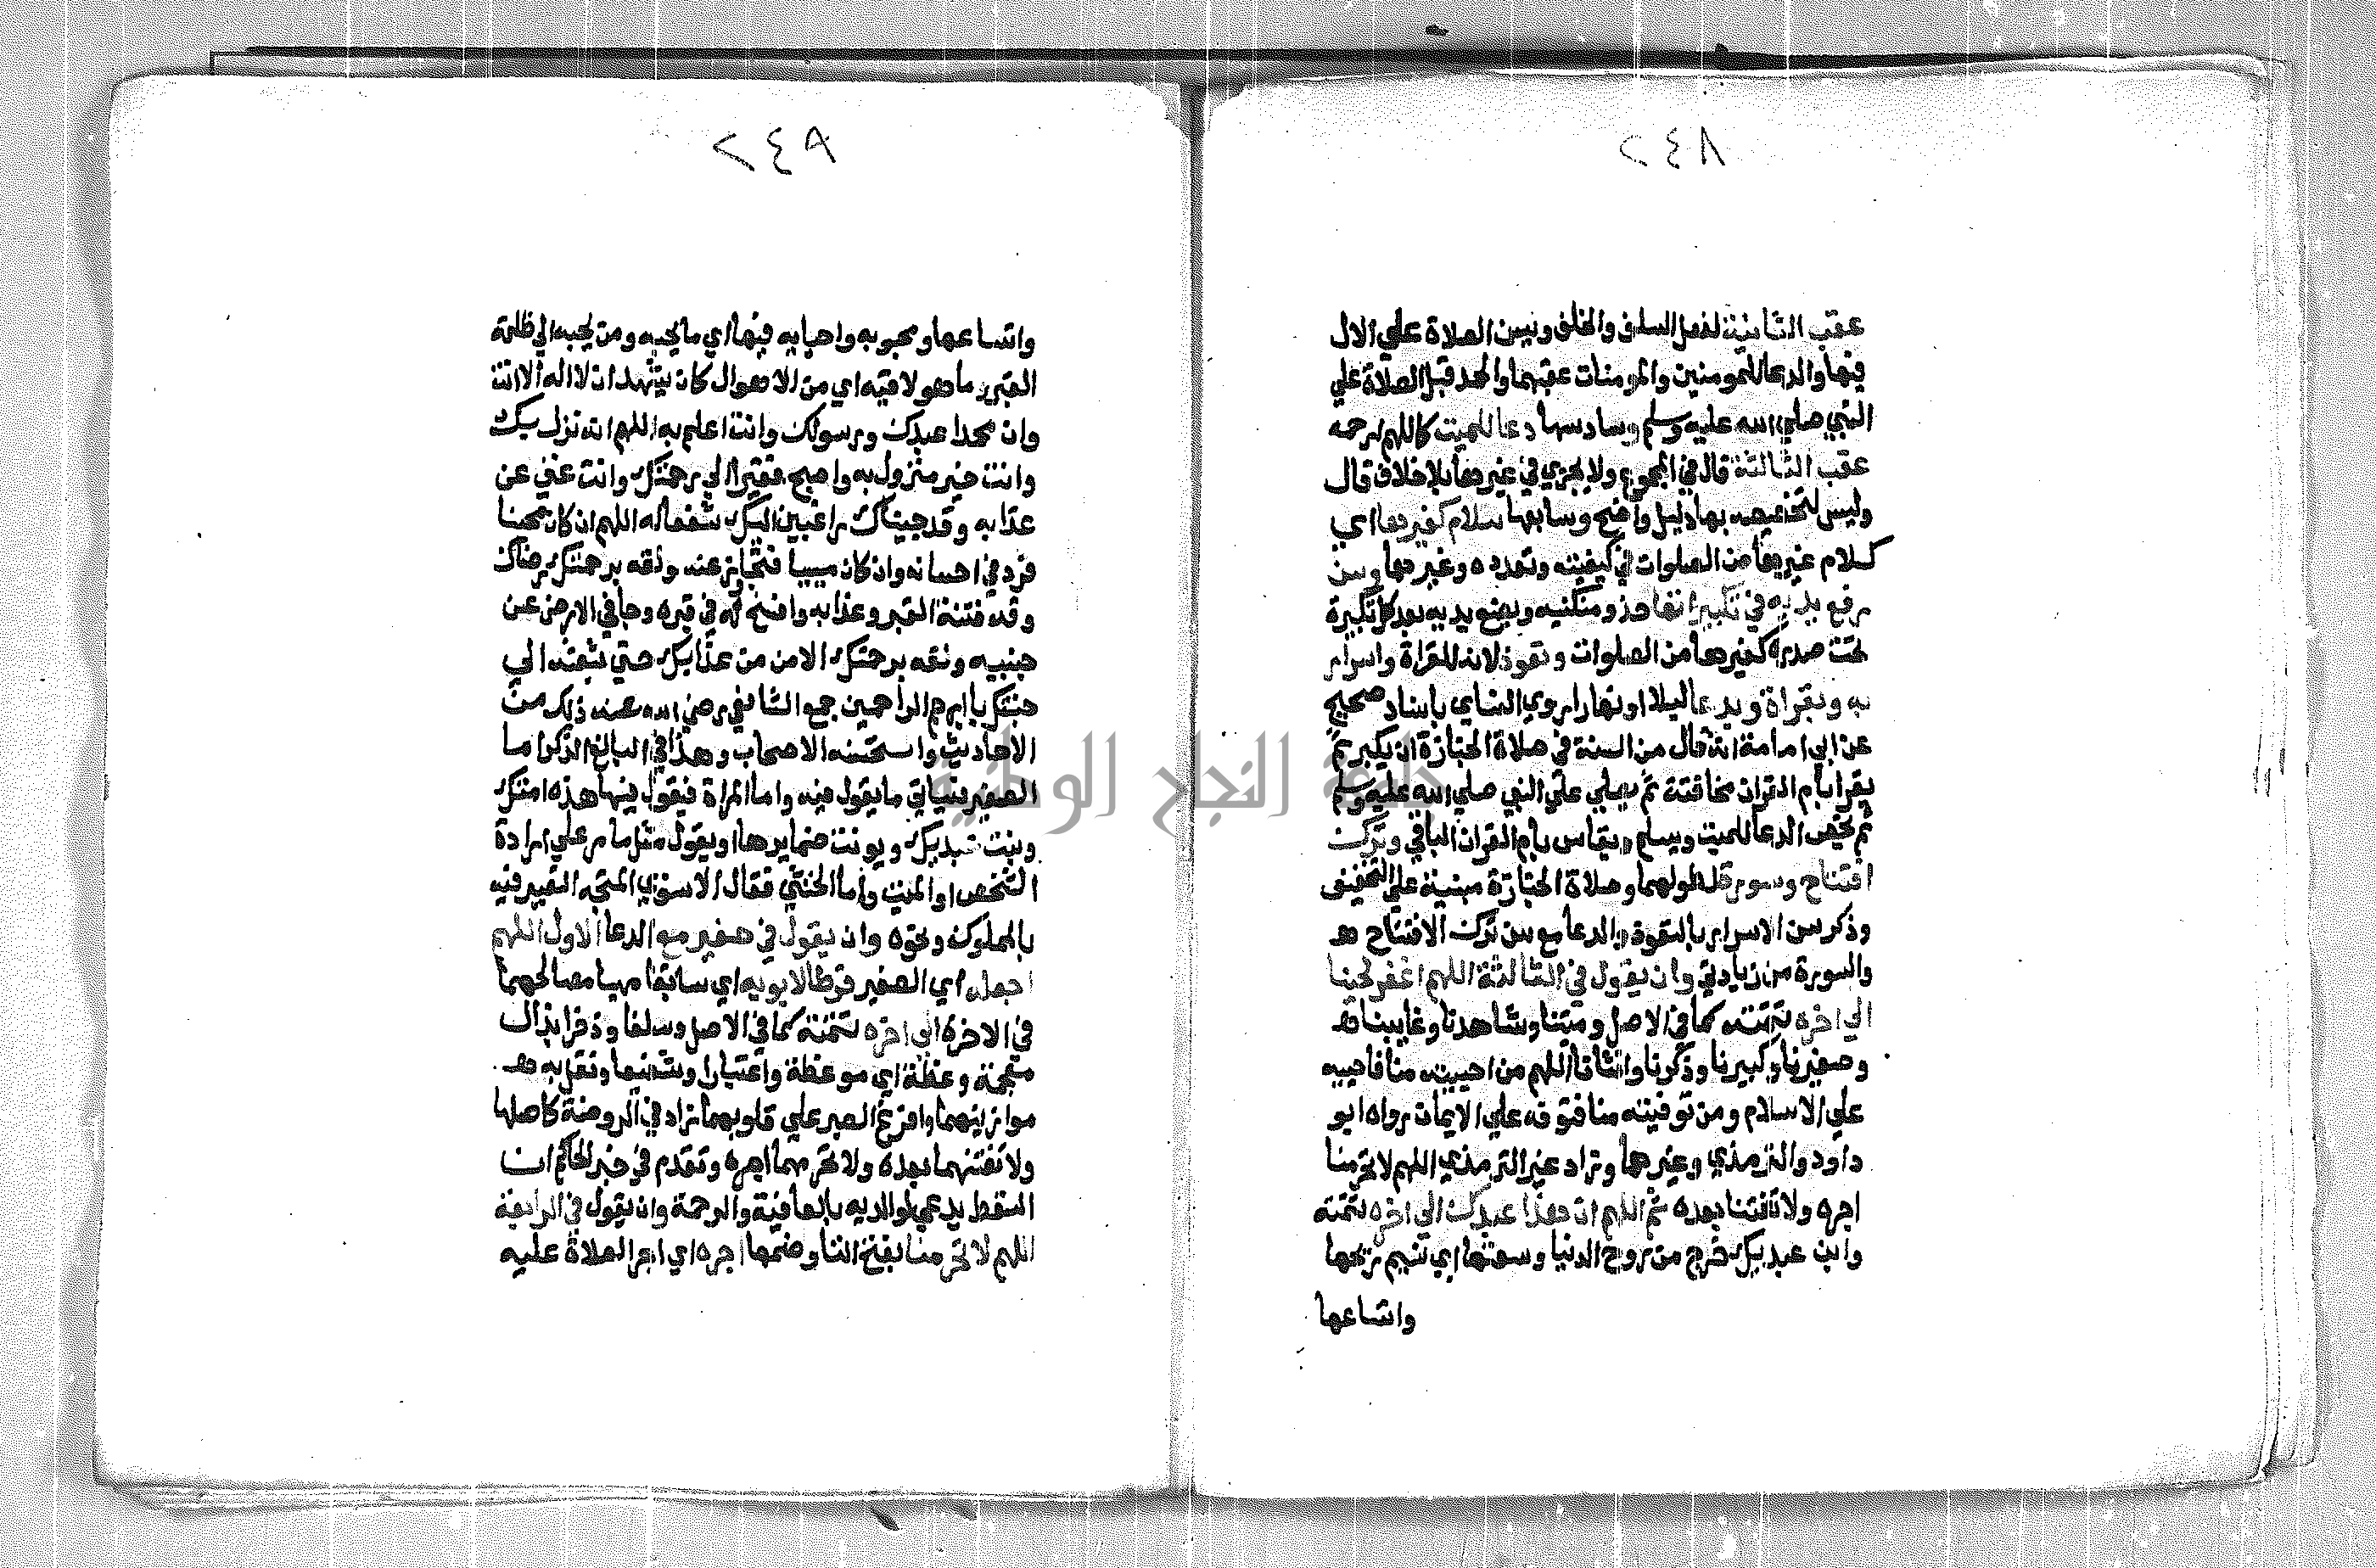 ٢٤٨
عقب الثانية لفعل السلف والخلف ويسن الصلاة علي الال
فيها والدعا للمومنين والمومنات عقبها والحمد قبل الصلاة علي
النبي صلي الله عليه وسلم وسادسها دعا للميت كاللهم ارحمه
عقب الثالثة قال في المجموع ولا يجزي في غيرها بلا خلاف قال
وليس لتخصيصه بها دليل واضح وسابعها سلام كغيرها اي
كسلام غيرها من الصلوات في كيفيته وتعدده وغيرها وسن
رفع يديه في تكبيراتها حذو منكبيه ويضع يديه بعد كل تكبيرة
تحت صدره كغيرها من الصلوات وتعوذ لانه للقراة واسرار
به وبقراة وبدعا ليلا او نهارا روي النساي باسناد صحيح
عن ابي امامة انه قال من السنة في صلاة الجنازة ان يكبر ثم
يقرا بام القران مخافتة ثم يصلي علي النبي صلي الله عليه وسلم
ثم يخص الدعا للميت ويسلم ويقاس بام القران الباقي وترك
افتتاح وسورة لطولهما وصلاة الجنازة مبنية علي التخفيف
وذكر سن الاسرار بالتعوذ والدعا مع سن ترك الافتتاح
والسورة من زيادتي وان يقول في الثالثة اللهم اغفر لحينا
الي اخره تتمته كما في الاصل وميتنا وشاهدنا وغايبنا
وصغيرنا وكبيرنا وذكرنا وانثانا اللهم من احييته منا فاحييه
علي الاسلام ومن توفيته منا فتوفه علي الايمان رواه ابو
داود والترمذي وغيرهما وزاد غير الترمذي اللهم لا تحرمنا
اجره ولا تفتنا بعده ثم اللهم ان هذا عبدك الي اخره تتمته
وابن عبديك خرج من روح الدنيا وسعتها اي نسيم ريحها
واتساعها
٢٤٩
واتساعها ومحبوبه واحبايه فيها اي ما يحبه ومن يحبه الي ظلمة
القبر وما هو لاقيه اي من الاهوال كان يشهد ان لا اله الا انت
وان محمدا عبدك ورسولك وانت اعلم به اللهم انه نزل بك
وانت خير منزول به واصبح فقيرا الي رحمتك وانت غني عن
عذابه وقد جيناك راغبين اليك شفعا له اللهم ان كان محسنا
فزد في احسانه وان كان مسييا فتجاوز عنه ولقه برحمتك رضاك
وقه فتنة القبر وعذابه وافسح له في قبره وجافي الارض عن
جنبيه ولقه برحمتك الامن من عذابك حتي تبعثه الي
جنتك يا ارحم الراحمين جمع الشافعي رضي الله عنه ذلك من
الاحاديث واستحسنه الاصحاب وهذا في البالغ الذكر اما
الصغير فسياتي ما يقول فيه واما المراة فيقول فيها هذه امتك
وبنت عبديك ويونث ضمايرها او يقول مثل ما مر علي ارادة
الشخص او الميت واما الخنثي فقال الاسنوي المتجه التعبير فيه
بالمملوك ونحوه وان يقول في صغير مع الدعا الاول اللهم
اجعله اي الصغير فرطا لابويه اي سابقا مهيا مصالحهما
في الاخرة الي اخره تتمته كما في الاصل وسلفا وذخرا بذال
معجمة وعظة اي موعظة واعتبارا وشفيعا وثقل به
موازينهما وافرغ الصبر علي قلوبهما زاد في الروضة كاصلها
ولا تفتنهما بعده ولا تحرمهما اجره وتقدم في خبر الحاكم ان
السقط يدعي لوالديه بالعافية والرحمة وان يقول في الرابعة
اللهم لا تحرمنا بفتح التا وضمها اجره اي اجر الصلاة عليه